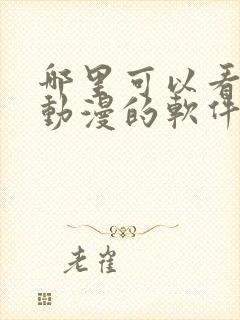 哪里可以看
動漫的軟件
老崔